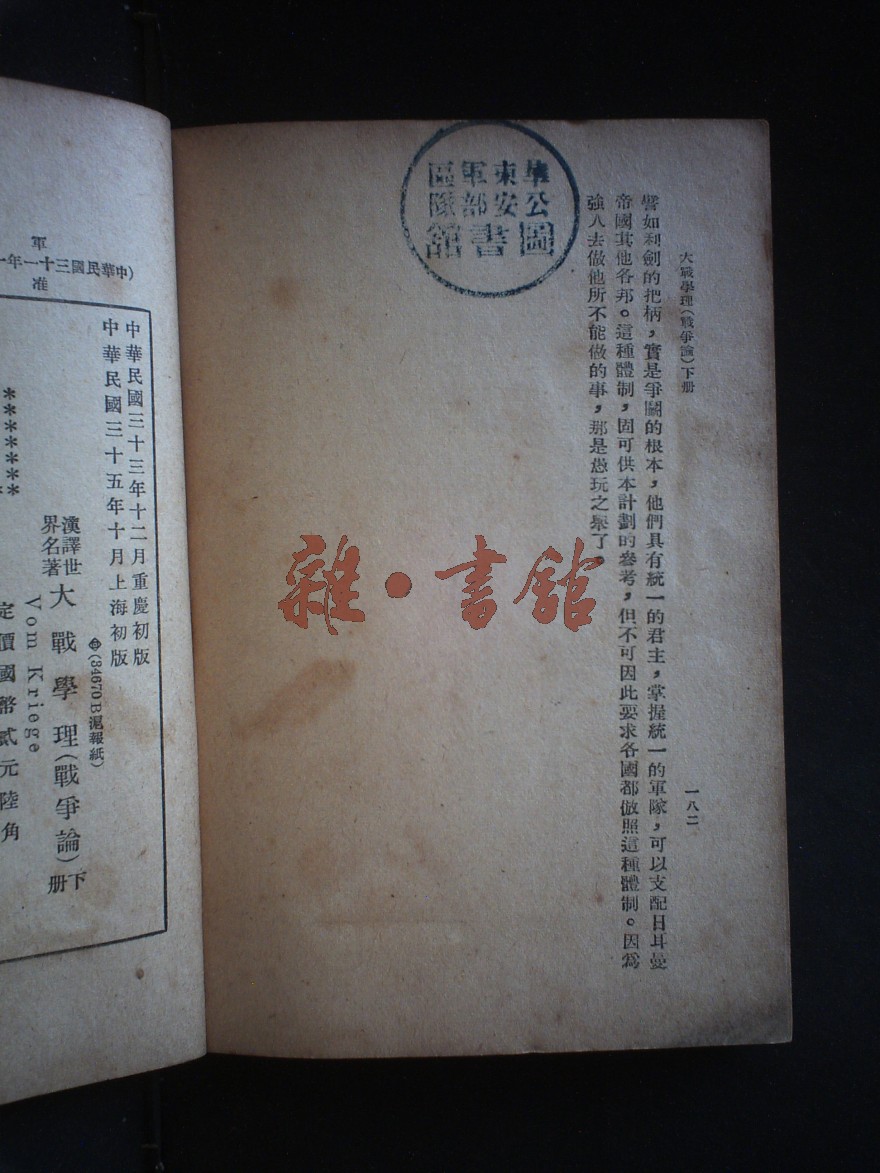 大戰學理(戰爭論)下册
一八二
譬如利劍的把柄，實是爭鬭的根本，他們具有統一的君主，掌握統一的軍隊，可以支配日耳曼
帝國其他各邦。這種體制，固可供本計劃的參考，但不可因此要求各國都倣照這種體制。因爲
強人去做他所不能做的事，那是愚玩之舉了。
華東軍區
公安部隊
圖書館
雜·書館
(中華民國三十一年一
軍
准
中華民國三十三年十二月重慶初版
中華民國三十五年十月上海初版
(34670B滬報紙)
漢譯世界名著
大戰學理(戰爭論)下册
Vom Kriege
定價國幣貳元陸角
******